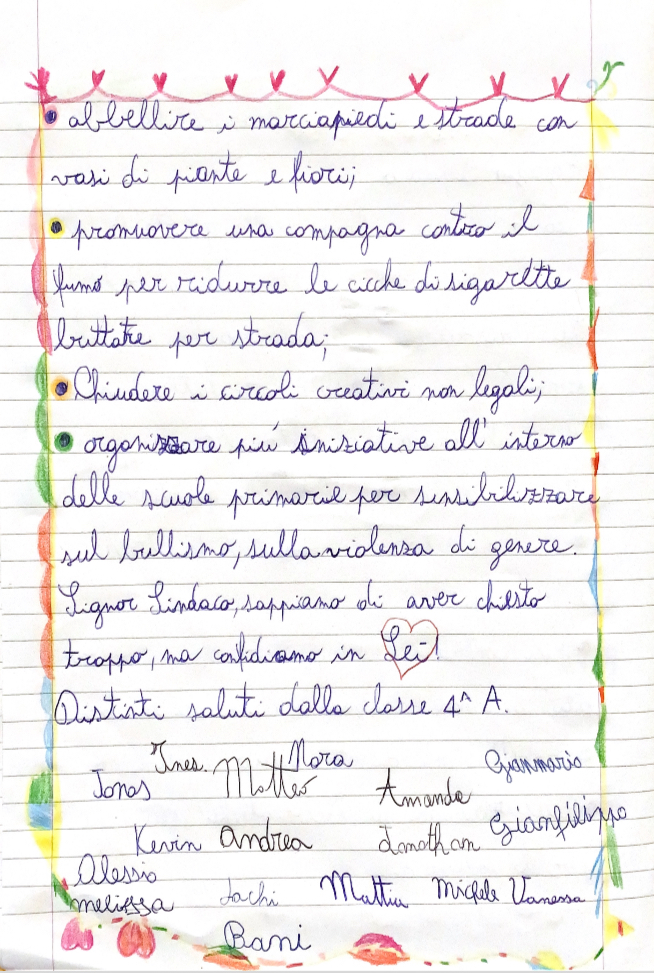 • abbellire i marciapiedi e strade con
vasi di piante e fiori;
• promuovere una compagna contro il
fumo per ridurre le cicche di sigarette
buttate per strada;
• Chiudere i circoli creativi non legali;
• organizzare piú iniziative all' interno
delle scuole primarie per sensibilizzare
sul bullismo, sulla violenza di genere.
Signor Sindaco, sappiamo di aver chiesto
troppo, ma confidiamo in Lei!
Distinti saluti dalla classe 4^ A.
Ines. Nora Gianmario
Jonas Matteo Amanda
Kevin Andrea Jonathan Gianfilippo
Alessio
melissa Mattia Michele Vanessa
Bani